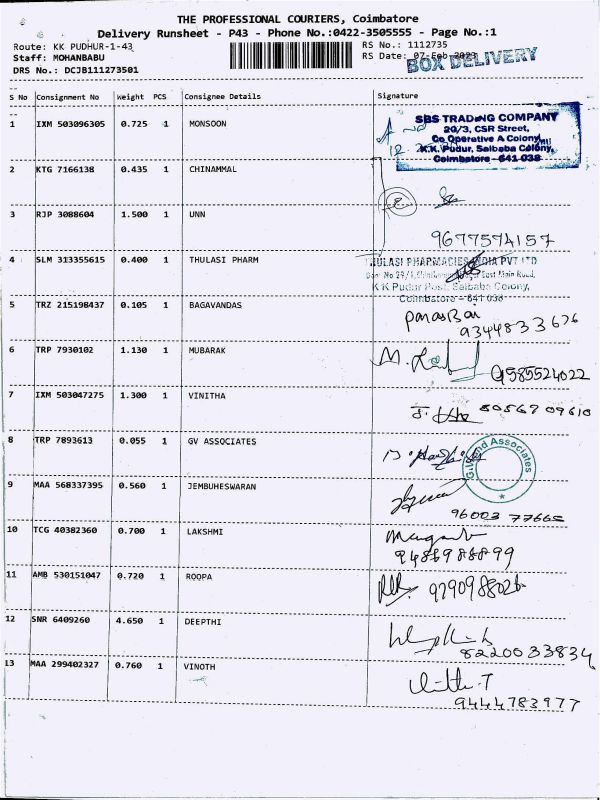 THE PROFESSIONAL COURIERS, Coimbatore
Delivery Runsheet - P43 - Phone No.:0422-3505555 - Page No.:1
Route: KK PUDHUR-1-43 RS No.: 1112735
Staff: MOHANBABU RS Date: 07-Feb-2023 BOX DELIVERY
DRS No.: DCJB111273501
S No Consignment No Weight PCS Consignee Details Signature
1 IXM 503096305 0.725 1 MONSOON
SBS TRADING COMPANY
20/3, CSR Street,
Co Operative A Colony,
K.K. Pudur, Saibaba Colony,
Coimbatore - 641 038
2 KTG 7166138 0.435 1 CHINAMMAL
3 RJP 3088604 1.500 1 UNN
9677574157
4 SLM 313355615 0.400 1 THULASI PHARM
THULASI PHARMACIES INDIA PVT LTD
East Main Road,
K K Pudur Post, Saibaba Colony,
Coimbatore - 641 038
5 TRZ 215198437 0.105 1 BAGAVANDAS
9344833676
6 TRP 7930102 1.130 1 MUBARAK
9585524022
7 IXM 503047275 1.300 1 VINITHA
8056709610
8 TRP 7893613 0.055 1 GV ASSOCIATES
9 MAA 568337395 0.560 1 JEMBUHESWARAN
96003 77665
10 TCG 40382360 0.700 1 LAKSHMI
9486988899
11 AMB 530151047 0.720 1 ROOPA
12 SNR 6409260 4.650 1 DEEPTHI
8220033834
13 MAA 299402327 0.760 1 VINOTH
9444783977